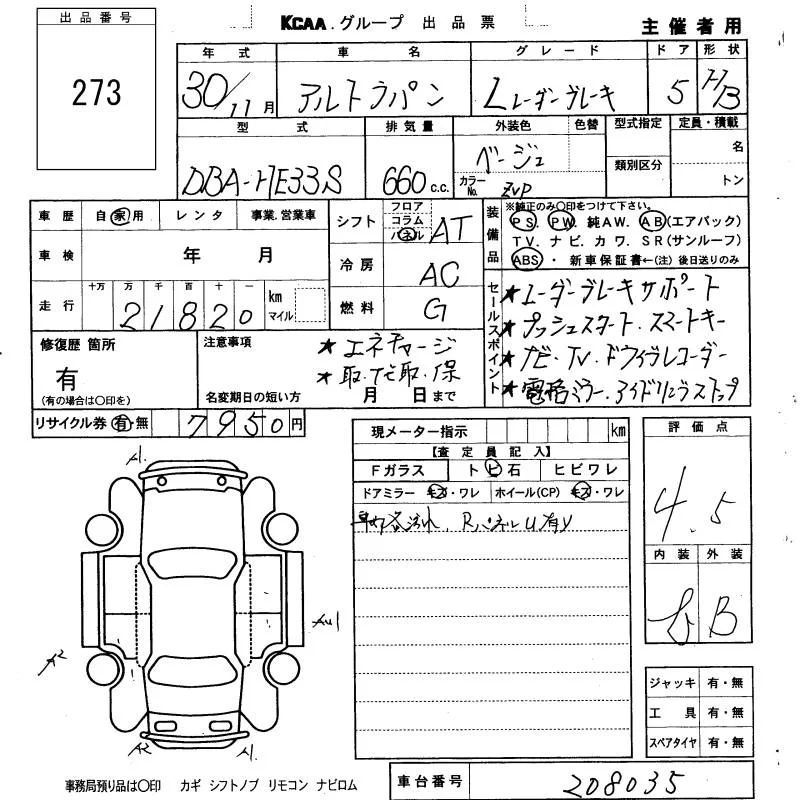 出品番号
273
KCAA.グループ 出品票
主催者用
年式 車名 グレード ドア 形状
30/11月 アルトラパン Lレーダーブレーキ 5 H/B
型式 排気量 外装色 色替 型式指定 定員・積載
DBA-HE33S 660c.c. ベージュ 名
カラーNo. ZVP 類別区分 トン
車歴 自家用 レンタ 事業.営業車
シフト フロア コラム パネル AT
装備品
※純正のみ〇印をつけて下さい。
PS. PW. 純AW. AB(エアバック)
TV. ナビ. カワ. SR(サンルーフ)
ABS・新車保証書←(注)後日送りのみ
車検 年 月
冷房 AC
走行 十万 万 千 百 十 一 km マイル
21820
燃料 G
セールスポイント
★レーダーブレーキサポート
★プッシュスタート.スマートキー
★ナビ・TV.ドライブレコーダー
★電格ミラー.アイドリングストップ
修復歴 箇所
有
(有の場合は〇印を)
注意事項
★エネチャージ
★取.ナビ取.保
名変期日の短い方 月 日まで
リサイクル券 有 無 7950円
現メーター指示 km
【査定員記入】
Fガラス トビ石 ヒビワレ
ドアミラー キズ・ワレ ホイール(CP) キズ・ワレ
Rパネル U有り
評価点
4.5
内装 外装
B
A1
AU1
A2
A2
A1
ジャッキ 有・無
工具 有・無
スペアタイヤ 有・無
事務局預り品は〇印 カギ シフトノブ リモコン ナビロム
車台番号 208035